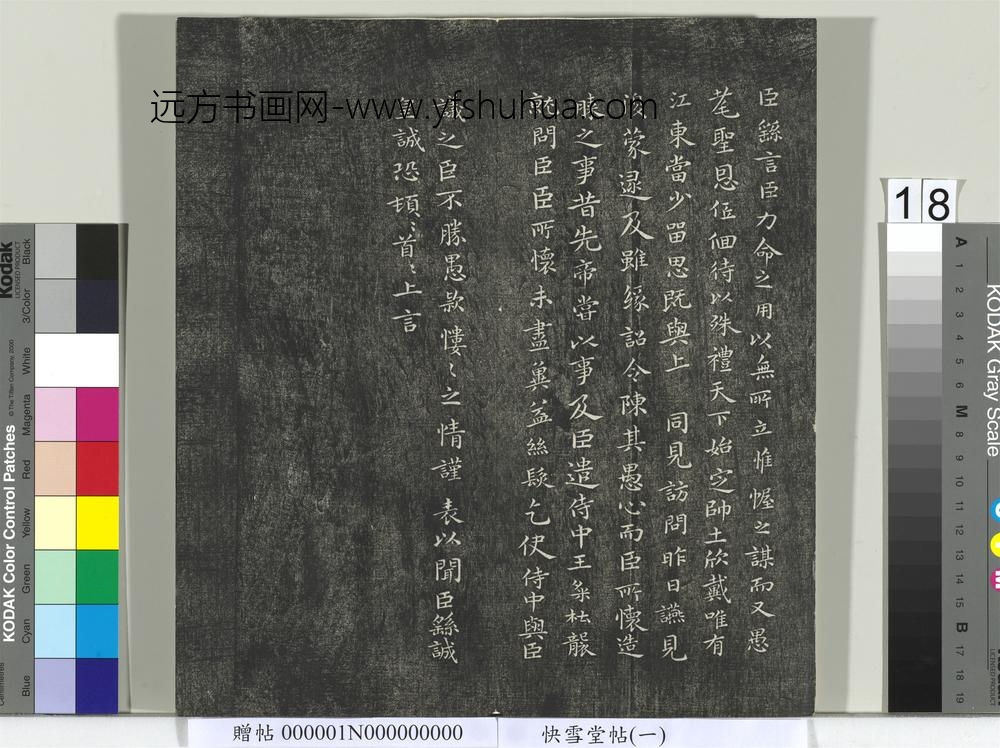 臣繇言臣力命之用以無所立惟幄之謀而又愚
耄聖恩伍佪待以殊禮天下始定帥土欣戴唯有
江東當少留思既與上 同見訪問昨日讌見
蒙逮及雖緣詔令陳其愚心而臣所懷造
膝之事昔先帝嘗以事及臣遣侍中王粲杜襲
就問臣臣所懷未盡冀益絲髮乞使侍中與臣
議之臣不勝愚款慺〻之情謹 表以聞臣繇誠
皇誠恐頓〻首〻上言
远方书画网-www.yfshuhua.com
18
贈帖 000001N000000000
快雪堂帖(一)
Kodak
LICENSED PRODUCT
KODAK Color Control Patches
© The Tiffen Company, 2000
Black
3/Color
White
Magenta
Red
Yellow
Green
Cyan
Blue
KODAK Gray Scale
A 1 2 3 4 5 6 M 8 9 10 11 12 13 14 15 B 17 18 19